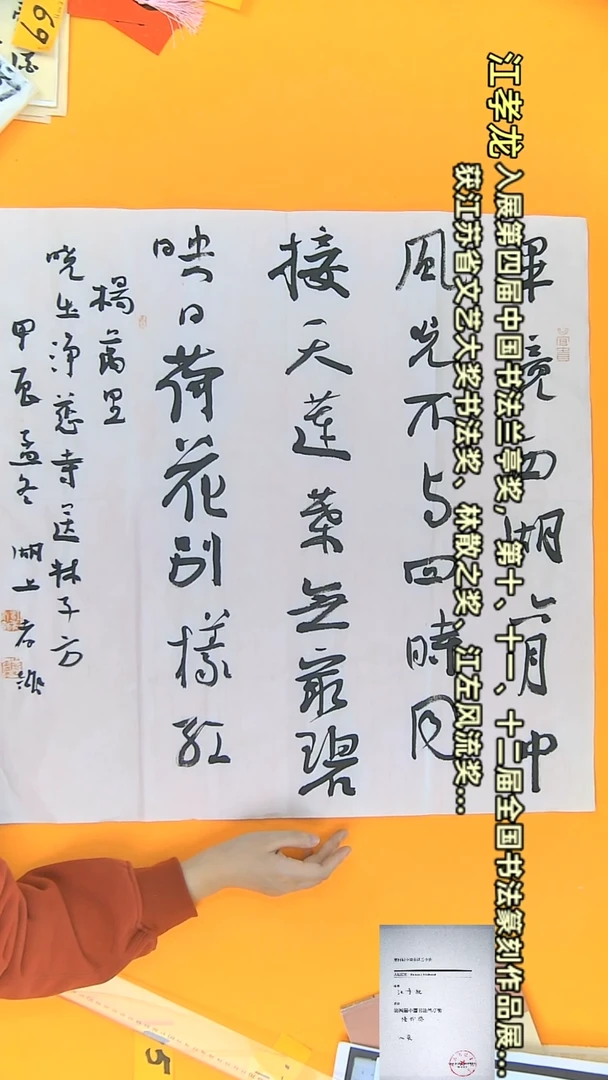 江孝龙 入展第四届中国书法兰亭奖，第十、十一、十二届全国书法篆刻作品展...
获江苏省文艺大奖书法奖、林散之奖、江左风流奖...
畢竟西湖六月中
風光不与四時同
接天蓮葉无窮碧
映日荷花別樣紅
楊萬里
晓出淨慈寺送林子方
甲辰孟冬 湖上孝龍
69